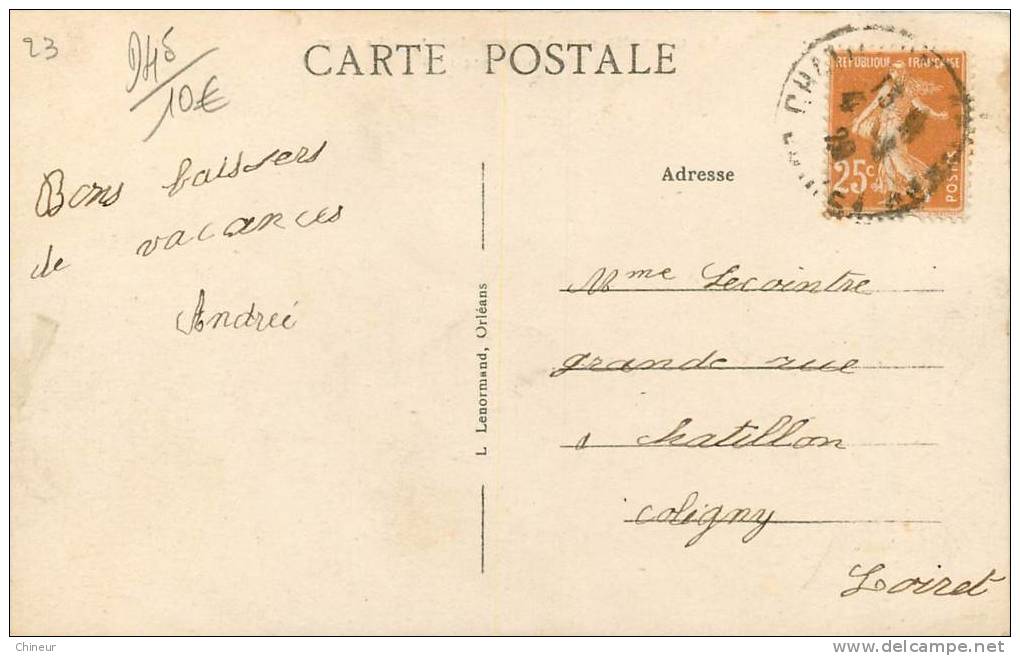 23
945
10€
CARTE POSTALE
Bons baissers
de vacances
Andrée
L Lenormand, Orléans
RÉPUBLIQUE FRANÇAISE
25c
POSTES
Adresse
Mme Lecointre
grande rue
a chatillon
coligny
Loiret
Chineur
delcampe.net